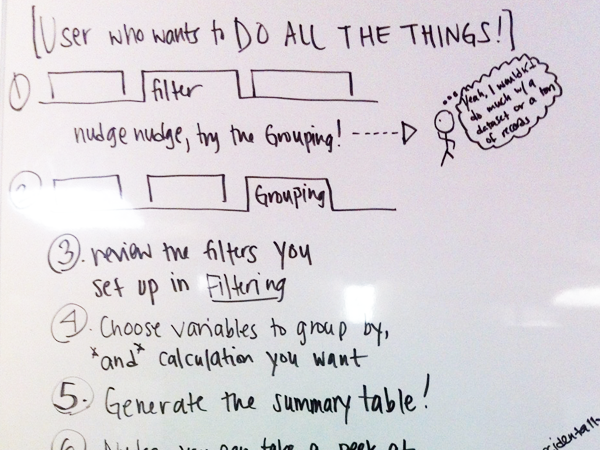 [User who wants to DO ALL THE THINGS!]
① filter
nudge nudge, try the Grouping!
Yeah, I wouldn't
do much w/ a
dataset or a ton
of records
Grouping
③. review the filters you
set up in Filtering
④. Choose variables to group by,
*and* calculation you want
⑤. Generate the summary table!
you can take a peek at